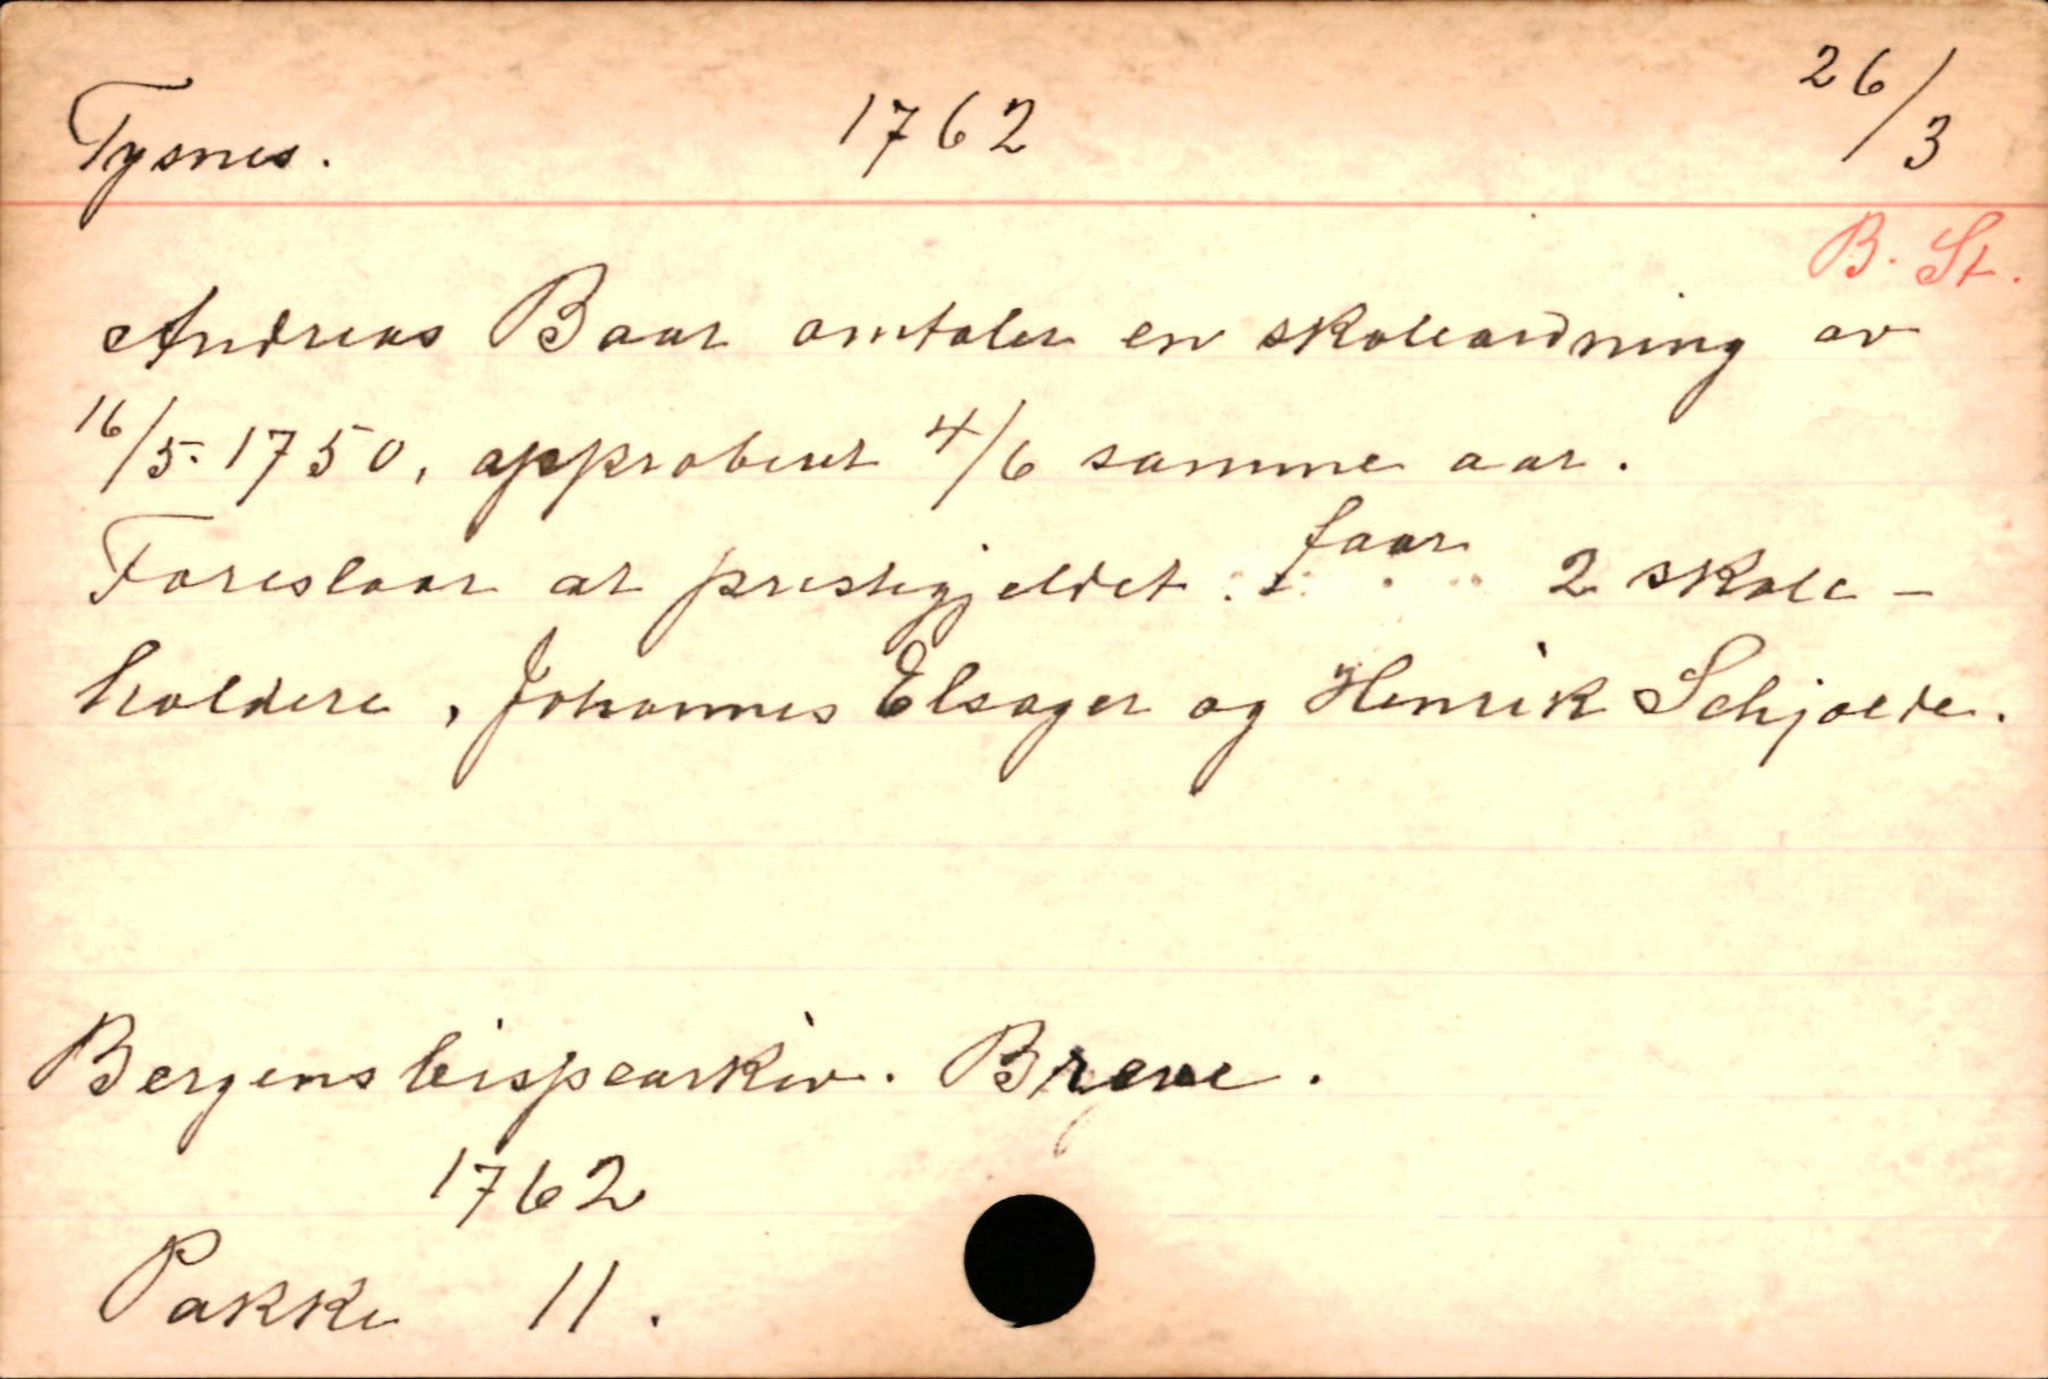 Tysnes. 1762 26/3
B. St.
Andreas Baar omtaler en skoleordning av
16/5-1750, approbert 4/6 samme aar.
Foreslaar at prestegjeldet faar 2 skole-
holdere, Johannes Elsager og Henrik Schjoede.
Bergens bispearkiv. Breve.
1762
Pakke 11.